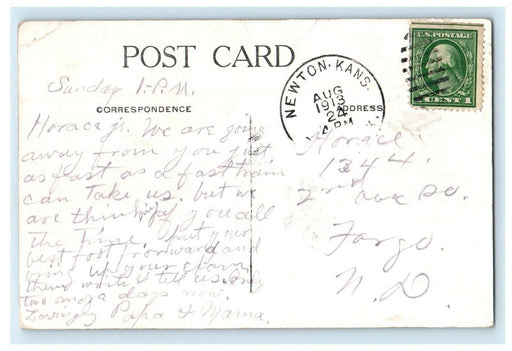 POST CARD
Sunday 1-P.M.
CORRESPONDENCE
ADDRESS
NEWTON. KANS.
AUG
24
1913
PM
U.S. POSTAGE
CENTS
Horace Jr. We are going
away from you just
as fast as a fast train
can take us. but we
are thinking of you all
the time. put your
best foot forward and
up your
then write & tell us. Only
two more days now.
Lovingly Papa & Mama.
Horace
1344
2nd Ave So.
Fargo.
N.D.